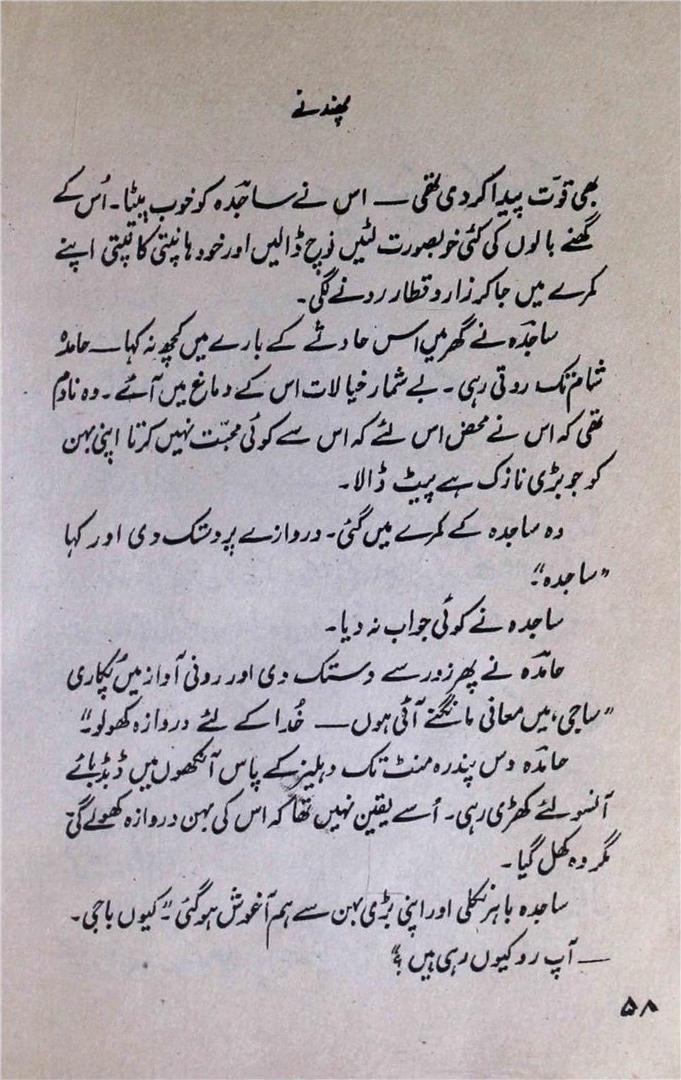 پھندنے
بھی قوّت پیدا کر دی تھی — اس نے ساجدہ کو خوب پیٹا۔ اُس کے
گھنے بالوں کی کئی خوبصورت لٹیں نوچ ڈالیں اور خود ہانپتی کانپتی اپنے
کمرے میں جا کر زار و قطار رونے لگی۔
ساجدہ نے گھر میں اس حادثے کے بارے میں کچھ نہ کہا — حامدہ
شام تک روتی رہی۔ بے شمار خیالات اس کے دماغ میں آئے۔ وہ نادم
تھی کہ اس نے محض اس لئے کہ اس سے کوئی محبّت نہیں کرتا اپنی بہن
کو جو بڑی نازک ہے پیٹ ڈالا۔
وہ ساجدہ کے کمرے میں گئی۔ دروازے پر دستک دی اور کہا
”ساجدہ“۔
ساجدہ نے کوئی جواب نہ دیا۔
حامدہ نے پھر زور سے دستک دی اور رونی آواز میں پُکاری
”ساجی، میں معافی مانگنے آئی ہوں — خُدا کے لئے دروازہ کھولو۔“
حامدہ دس پندرہ منٹ تک دہلیز کے پاس آنکھوں میں ڈبڈبائے
آنسو لئے کھڑی رہی۔ اُسے یقین نہیں تھا کہ اس کی بہن دروازہ کھولے گی
مگر وہ کھل گیا۔
ساجدہ باہر نکلی اور اپنی بڑی بہن سے ہم آغوش ہو گئی ”کیوں باجی۔
— آپ رو کیوں رہی ہیں؟“
۵۸